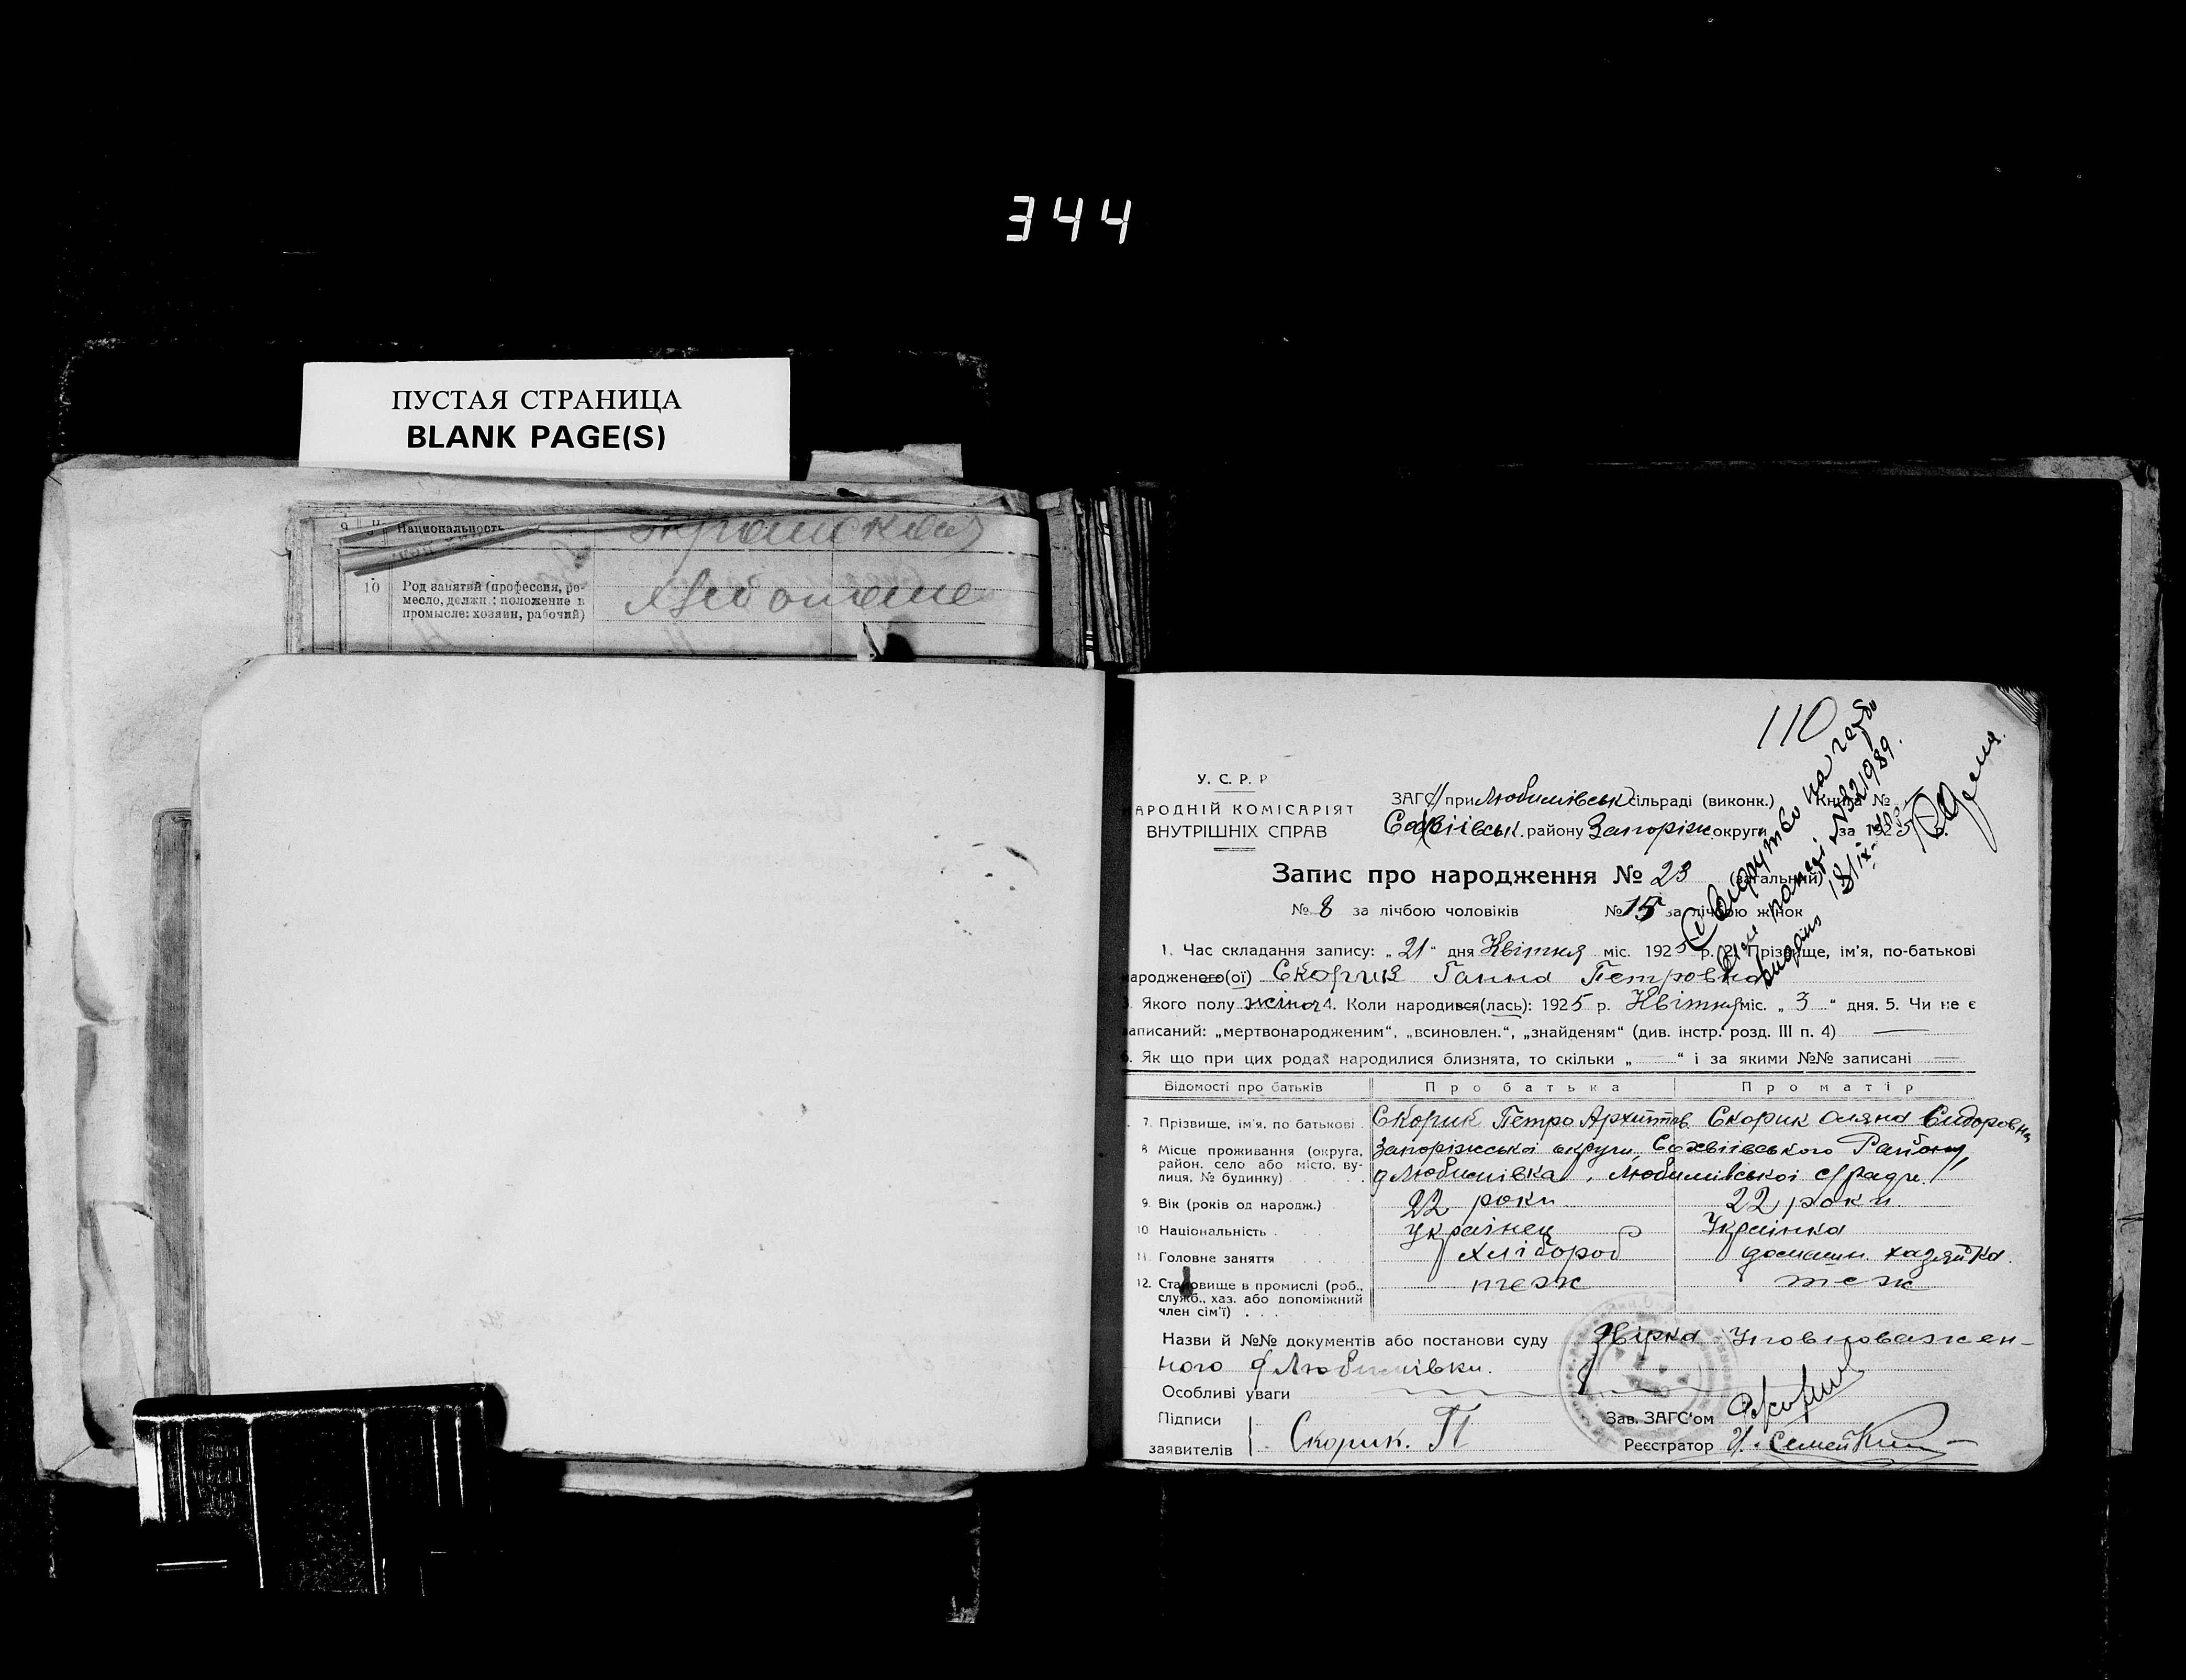 344
ПУСТАЯ СТРАНИЦА
BLANK PAGE(S)
9 Национальность
10 Род занятий (профессия, ре-
месло, должн.; положение в
промысле: хозяин, рабочий)
110
У. С. Р. Р
АРОДНІЙ КОМІСАРІЯТ
ВНУТРІШНІХ СПРАВ
ЗАГС при Любимівськ сільраді (виконк.) Книга №
Софіівськ. району Запоріж. округи за 1925
Запис про народження № 23 (загальний)
№ 8 за лічбою чоловіків № 15 за лічбою жінок
1. Час складання запису: „21“ дня Квітня міс. 1925 р. 2. Прізвище, ім'я, по-батькові
ародженого(ої) Скорик Ганна Петровна
Якого полу жіноч 4. Коли народився(лась): 1925 р. Квітня міс. „3“ дня. 5. Чи не є
аписаний: „мертвонародженим“, „всиновлен.“, „знайденям“ (див. інстр. розд. III п. 4) —
6. Як що при цих родах народилися близнята, то скільки „—“ і за якими №№ записані —
Відомості про батьків Про батька Про матір
7. Прізвище, ім'я, по батькові Скорик Петро Архипів Скорик Оляна Сидоровна
8 Місце проживання (округа, район, село або місто, ву-лиця, № будинку) Запоріжської округи, Сохвіівського Району,
д Любимівка, Любимівської с/ради
9. Вік (років од народж.) 22 роки 22 роки
10 Національність Українец Українка
11. Головне заняття Хлібороб домашн. хазяйка.
12. Становище в промислі (роб., служб., хаз. або допоміжний член сім'ї) теж теж
Назви й №№ документів або постанови суду Уповноважен-
ного д Любимівки.
Особливі уваги
Підписи
заявителів Скорик. П
Зав. ЗАГС'ом
Реєстратор